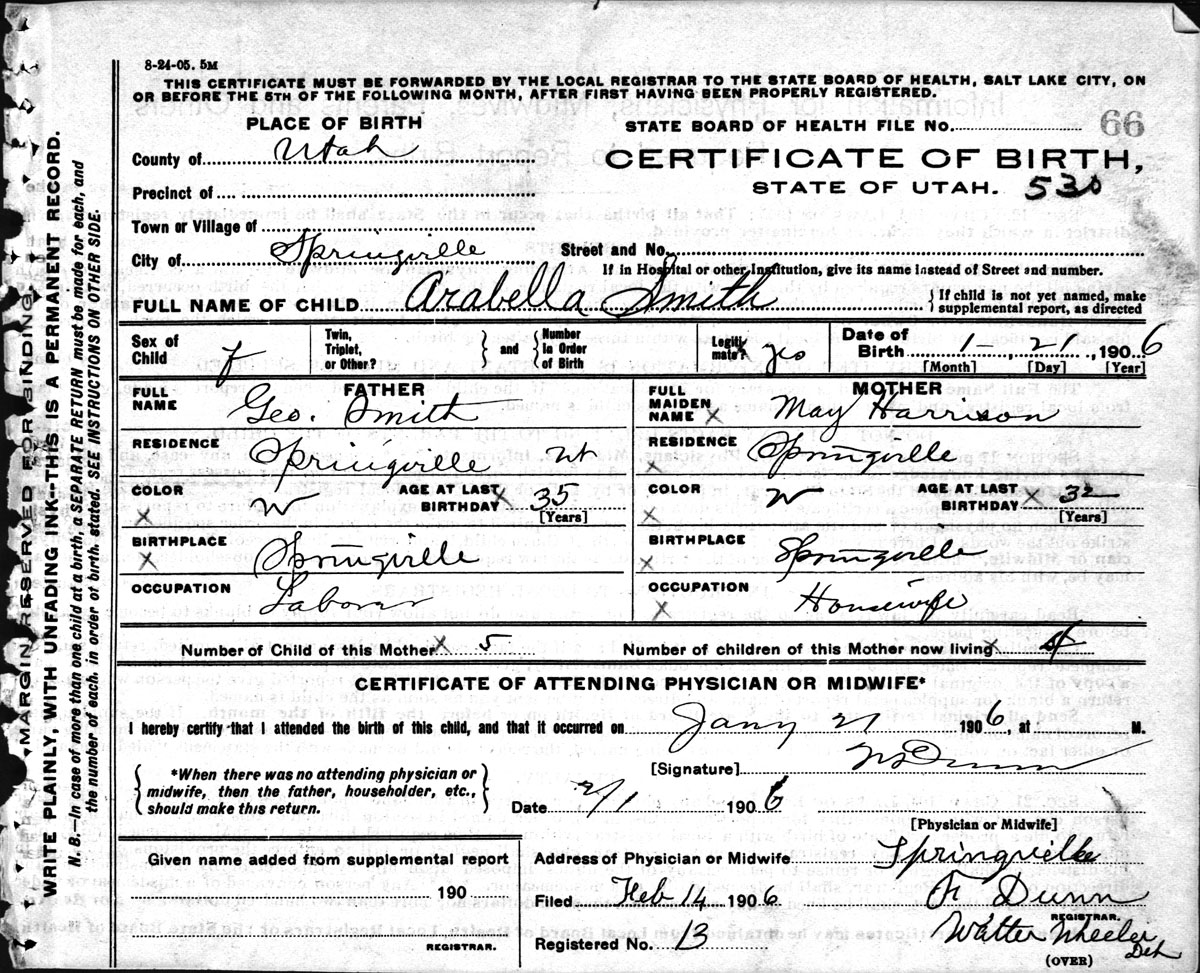 8-24-05. 5M
THIS CERTIFICATE MUST BE FORWARDED BY THE LOCAL REGISTRAR TO THE STATE BOARD OF HEALTH, SALT LAKE CITY, ON
OR BEFORE THE 5TH OF THE FOLLOWING MONTH, AFTER FIRST HAVING BEEN PROPERLY REGISTERED.
PLACE OF BIRTH
STATE BOARD OF HEALTH FILE No. 66
County of Utah
CERTIFICATE OF BIRTH,
STATE OF UTAH. 530
Precinct of
Town or Village of
City of Springville
Street and No.
If in Hospital or other Institution, give its name instead of Street and number.
FULL NAME OF CHILD Arabella Smith
} If child is not yet named, make
supplemental report, as directed
Sex of Child f
Twin, Triplet, or Other? } and { Number in Order of Birth
Legitimate? yes
Date of Birth 1 , 21 , 1906
[Month] [Day] [Year]
FATHER
FULL NAME Geo. Smith
MOTHER
FULL MAIDEN NAME X May Harrison
RESIDENCE Springville Ut
RESIDENCE X Springville
COLOR X W AGE AT LAST BIRTHDAY X 35 [Years]
COLOR X W AGE AT LAST BIRTHDAY X 32 [Years]
BIRTHPLACE X Springville
BIRTHPLACE X Springville
OCCUPATION Laborer
OCCUPATION X Housewife
Number of Child of this Mother X 5 Number of children of this Mother now living X
CERTIFICATE OF ATTENDING PHYSICIAN OR MIDWIFE*
I hereby certify that I attended the birth of this child, and that it occurred on Jany 21 1906, at M.
{ *When there was no attending physician or
midwife, then the father, householder, etc.,
should make this return. }
[Signature] Dunn
Date 2/1 1906
[Physician or Midwife]
Given name added from supplemental report
190
REGISTRAR.
Address of Physician or Midwife Springville
Filed Feb 14 1906 Dunn
REGISTRAR.
Registered No. 13 Walter Wheeler
(OVER)
MARGIN RESERVED FOR BINDING
WRITE PLAINLY, WITH UNFADING INK--THIS IS A PERMANENT RECORD.
N. B.—In case of more than one child at a birth, a SEPARATE RETURN must be made for each, and
the number of each, in order of birth, stated. SEE INSTRUCTIONS ON OTHER SIDE.